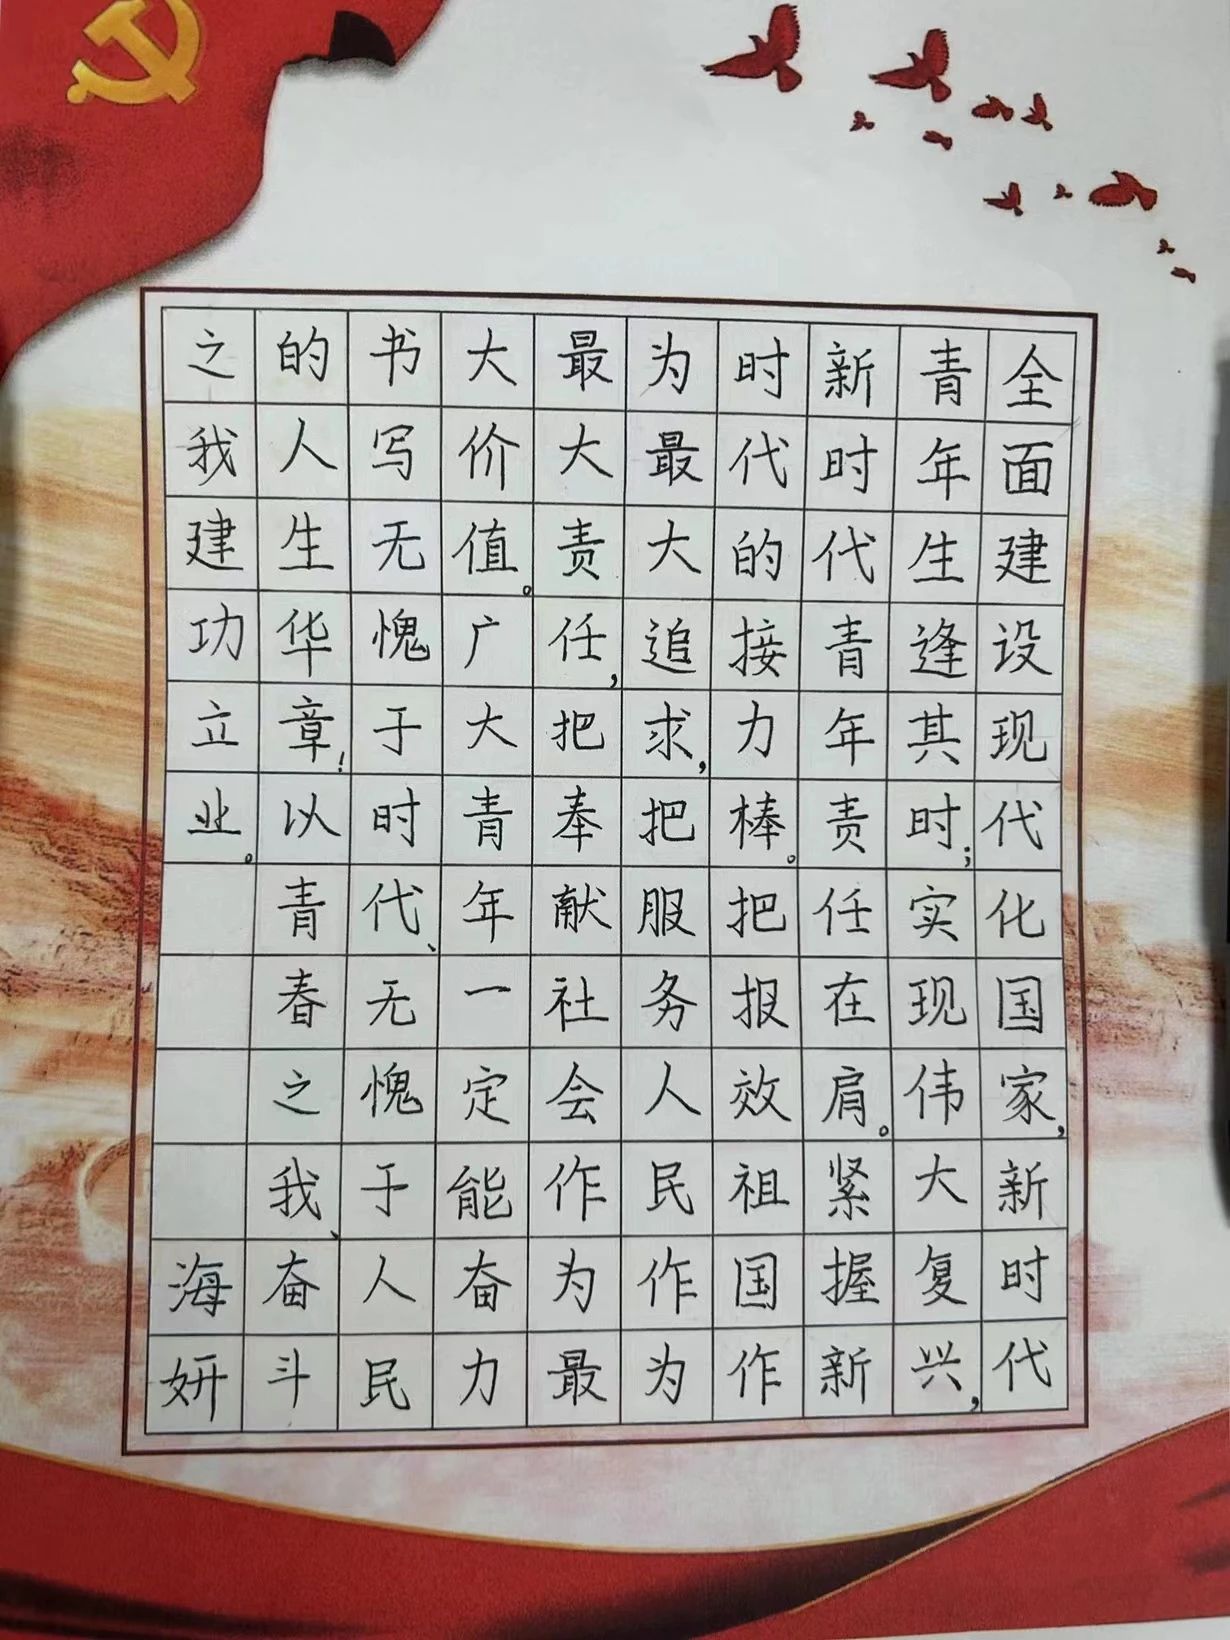 全面建设现代化国家，新时代
青年生逢其时；实现伟大复兴，
新时代青年责任在肩。紧握新
时代的接力棒。把报效祖国作
为最大追求，把服务人民作为
最大责任，把奉献社会作为最
大价值。广大青年一定能奋力
书写无愧于时代、无愧于人民
的人生华章！以青春之我、奋斗
之我建功立业。海妍